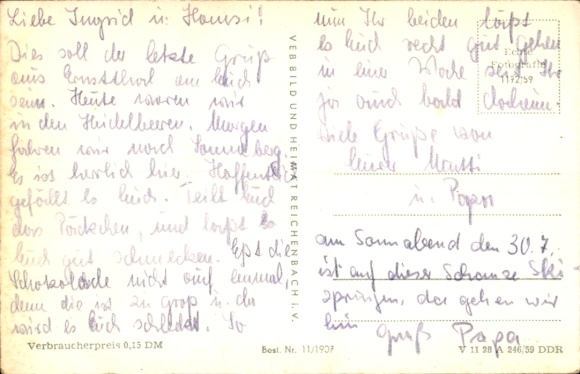 Liebe Ingrid u. Hansi!
Dies soll der letzte Gruß
aus Ernstthal an Euch
sein. Heute waren wir
in den Heidelbeeren. Morgen
fahren wir nach Sonneberg.
Es ist herrlich hier. Hoffentlich
gefällt es Euch. Teilt Euch
das Päckchen, und laßt es
Euch gut schmecken. Eßt die
Schokolade nicht auf einmal,
denn die ist zu groß u. da
wird es Euch schlecht. So
nun Ihr beiden laßt
es Euch recht gut gehen
in einer Woche seid Ihr
ja auch bald daheim.
viele Grüße von
Eurer Mutti
u. Papa
am Sonnabend den 30.7.
ist auf dieser Schanze Ski-
springen, da gehen wir
hin
Gruß Papa
Echte
Fotografie
1172/59
VEB BILD UND HEIMAT REICHENBACH I. V.
Verbraucherpreis 0,15 DM
Best. Nr. 11/1907
V 11 28 A 246/59 DDR